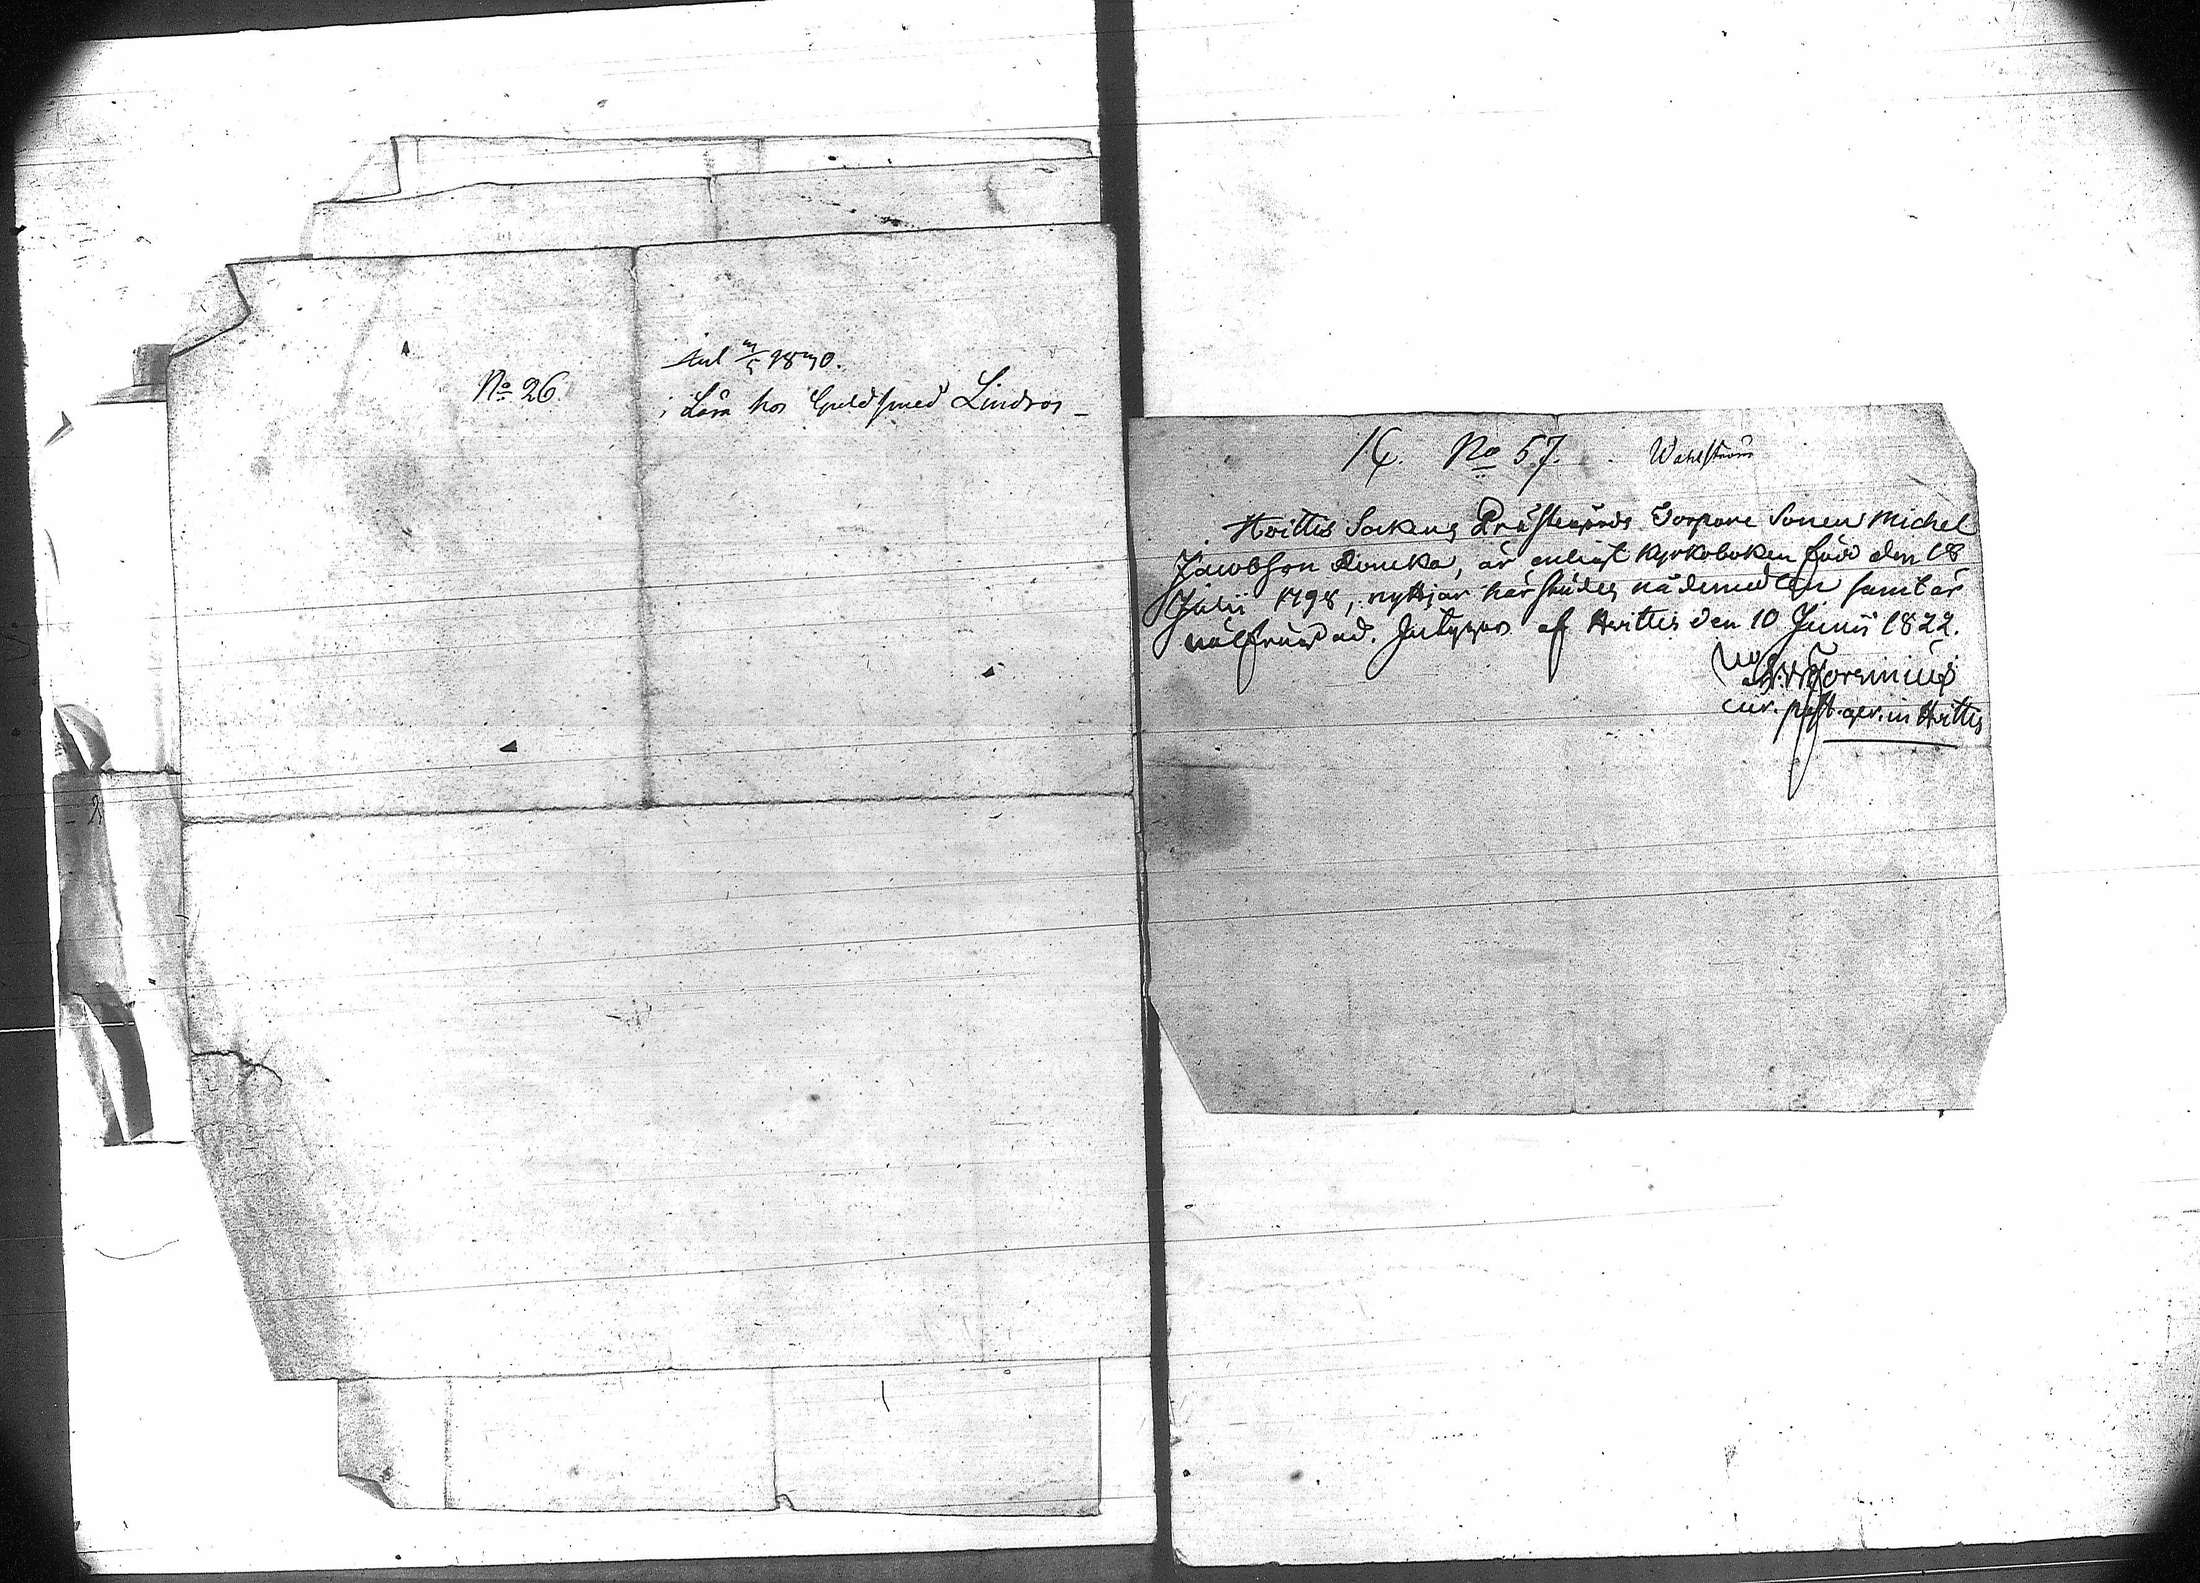 No 26.
Anl 3/5 1830.
i Lära hos Guldsmed Lindros
16. No 57. Wahlström
Hvittis Sockens Prästegårds Torpare Sonen Michel
Jacobsson, är enligt Kyrkoboken född den 18
Julii 1798, nyttjar härstädes nådemedlen samt är
välfrejdad. Intygas af Hvittis den 10 Junii 1822.
cur. past. in Hvittis